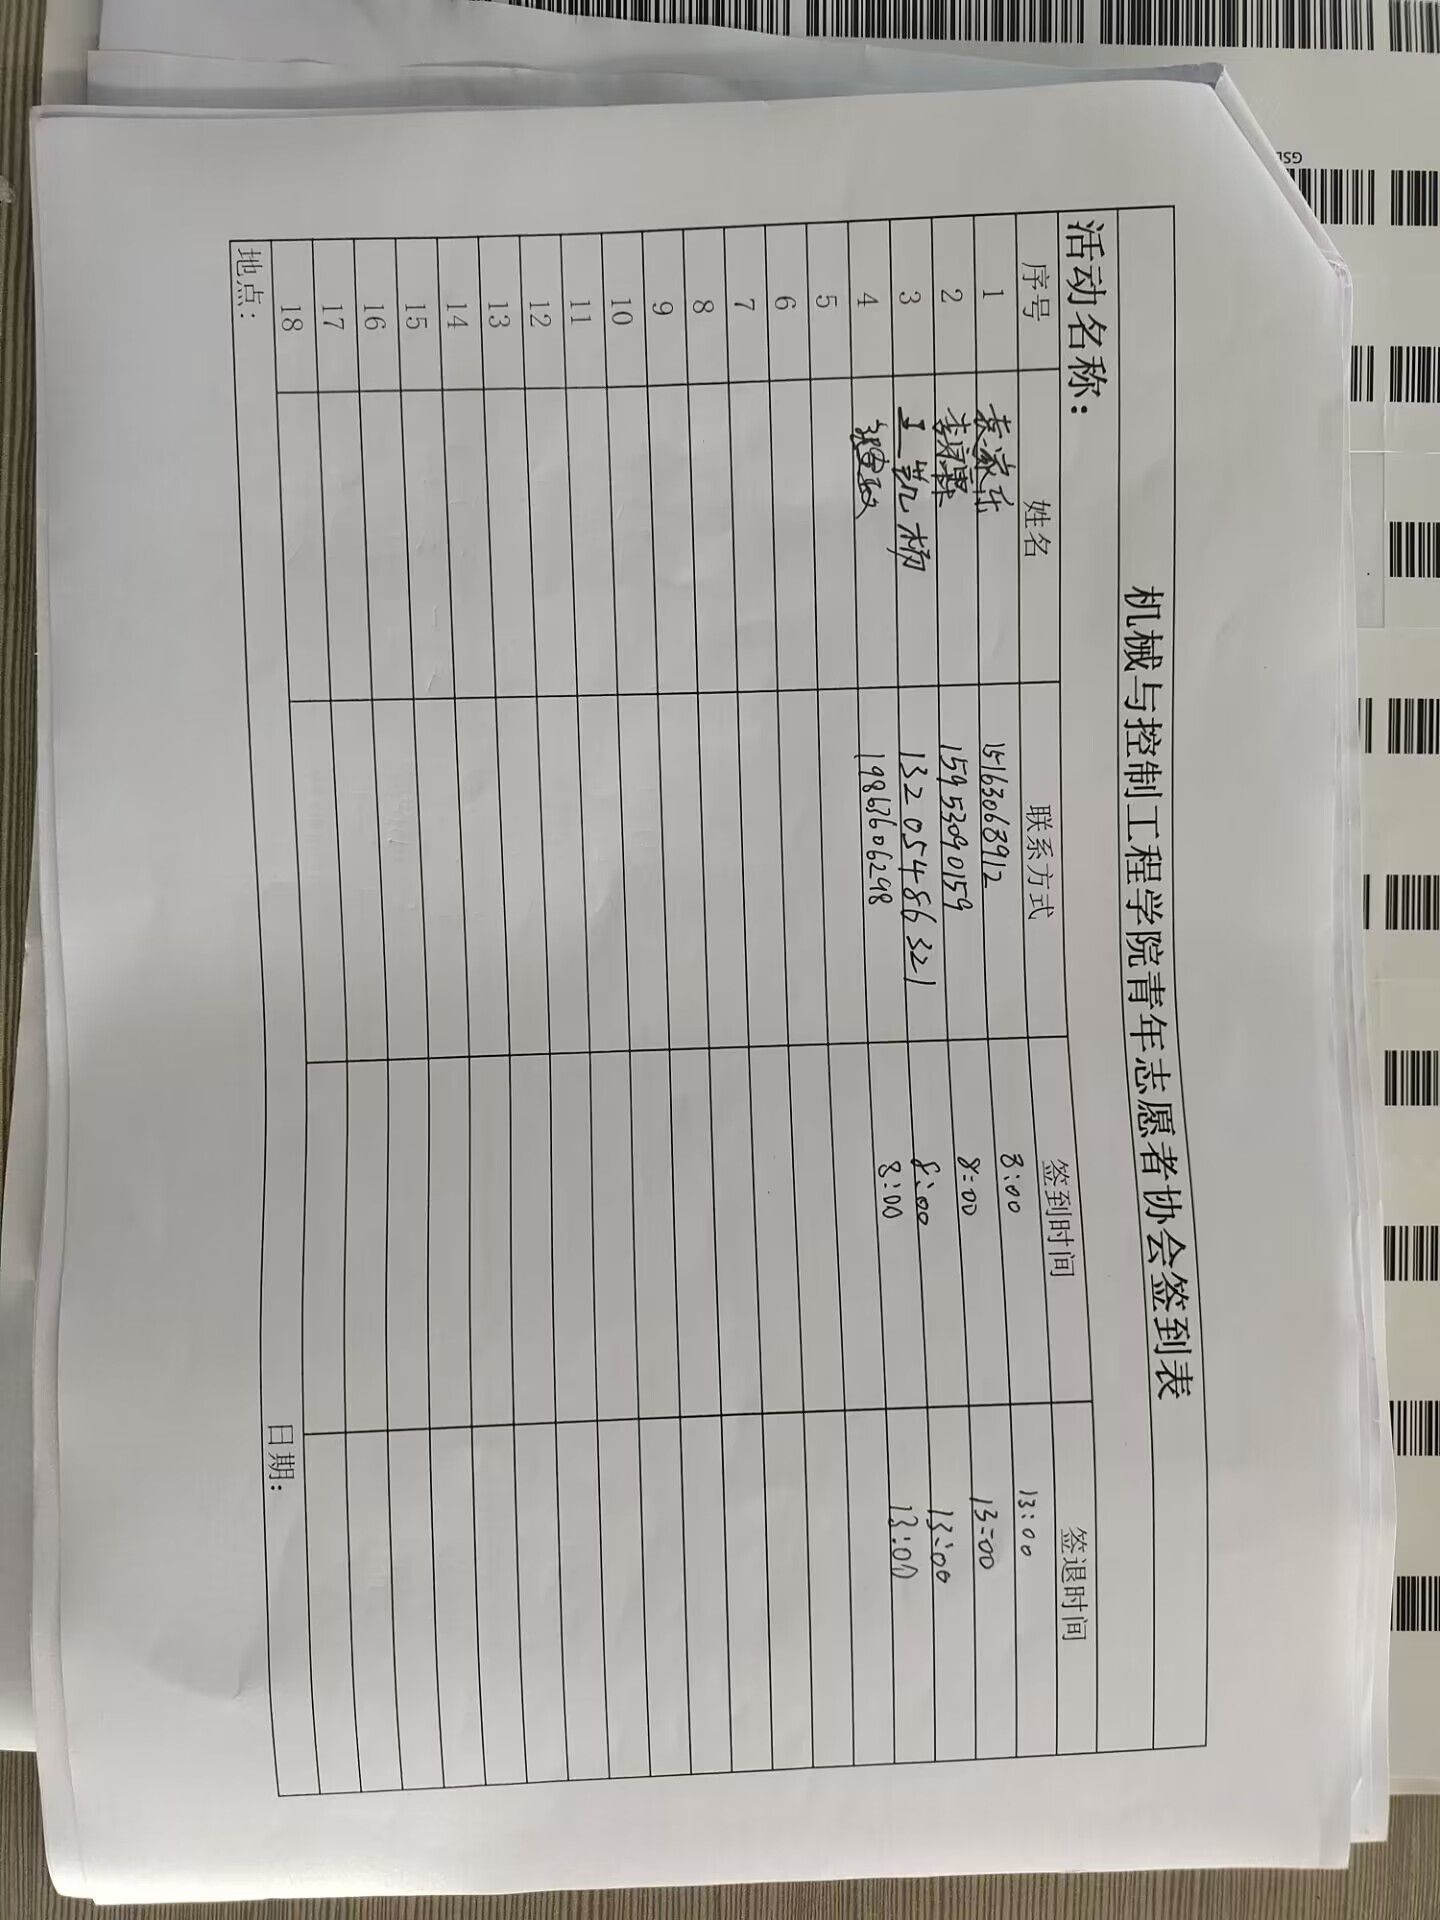 机械与控制工程学院青年志愿者协会签到表
活动名称：
序号 姓名 联系方式 签到时间 签退时间
1 袁家乐 15163068912 8:00 13:00
2 李 霖 15953090159 8:00 13:00
3 王凯杨 13205486321 8:00 13:00
4 19863606298 8:00 13:00
5
6
7
8
9
10
11
12
13
14
15
16
17
18
地点： 日期：